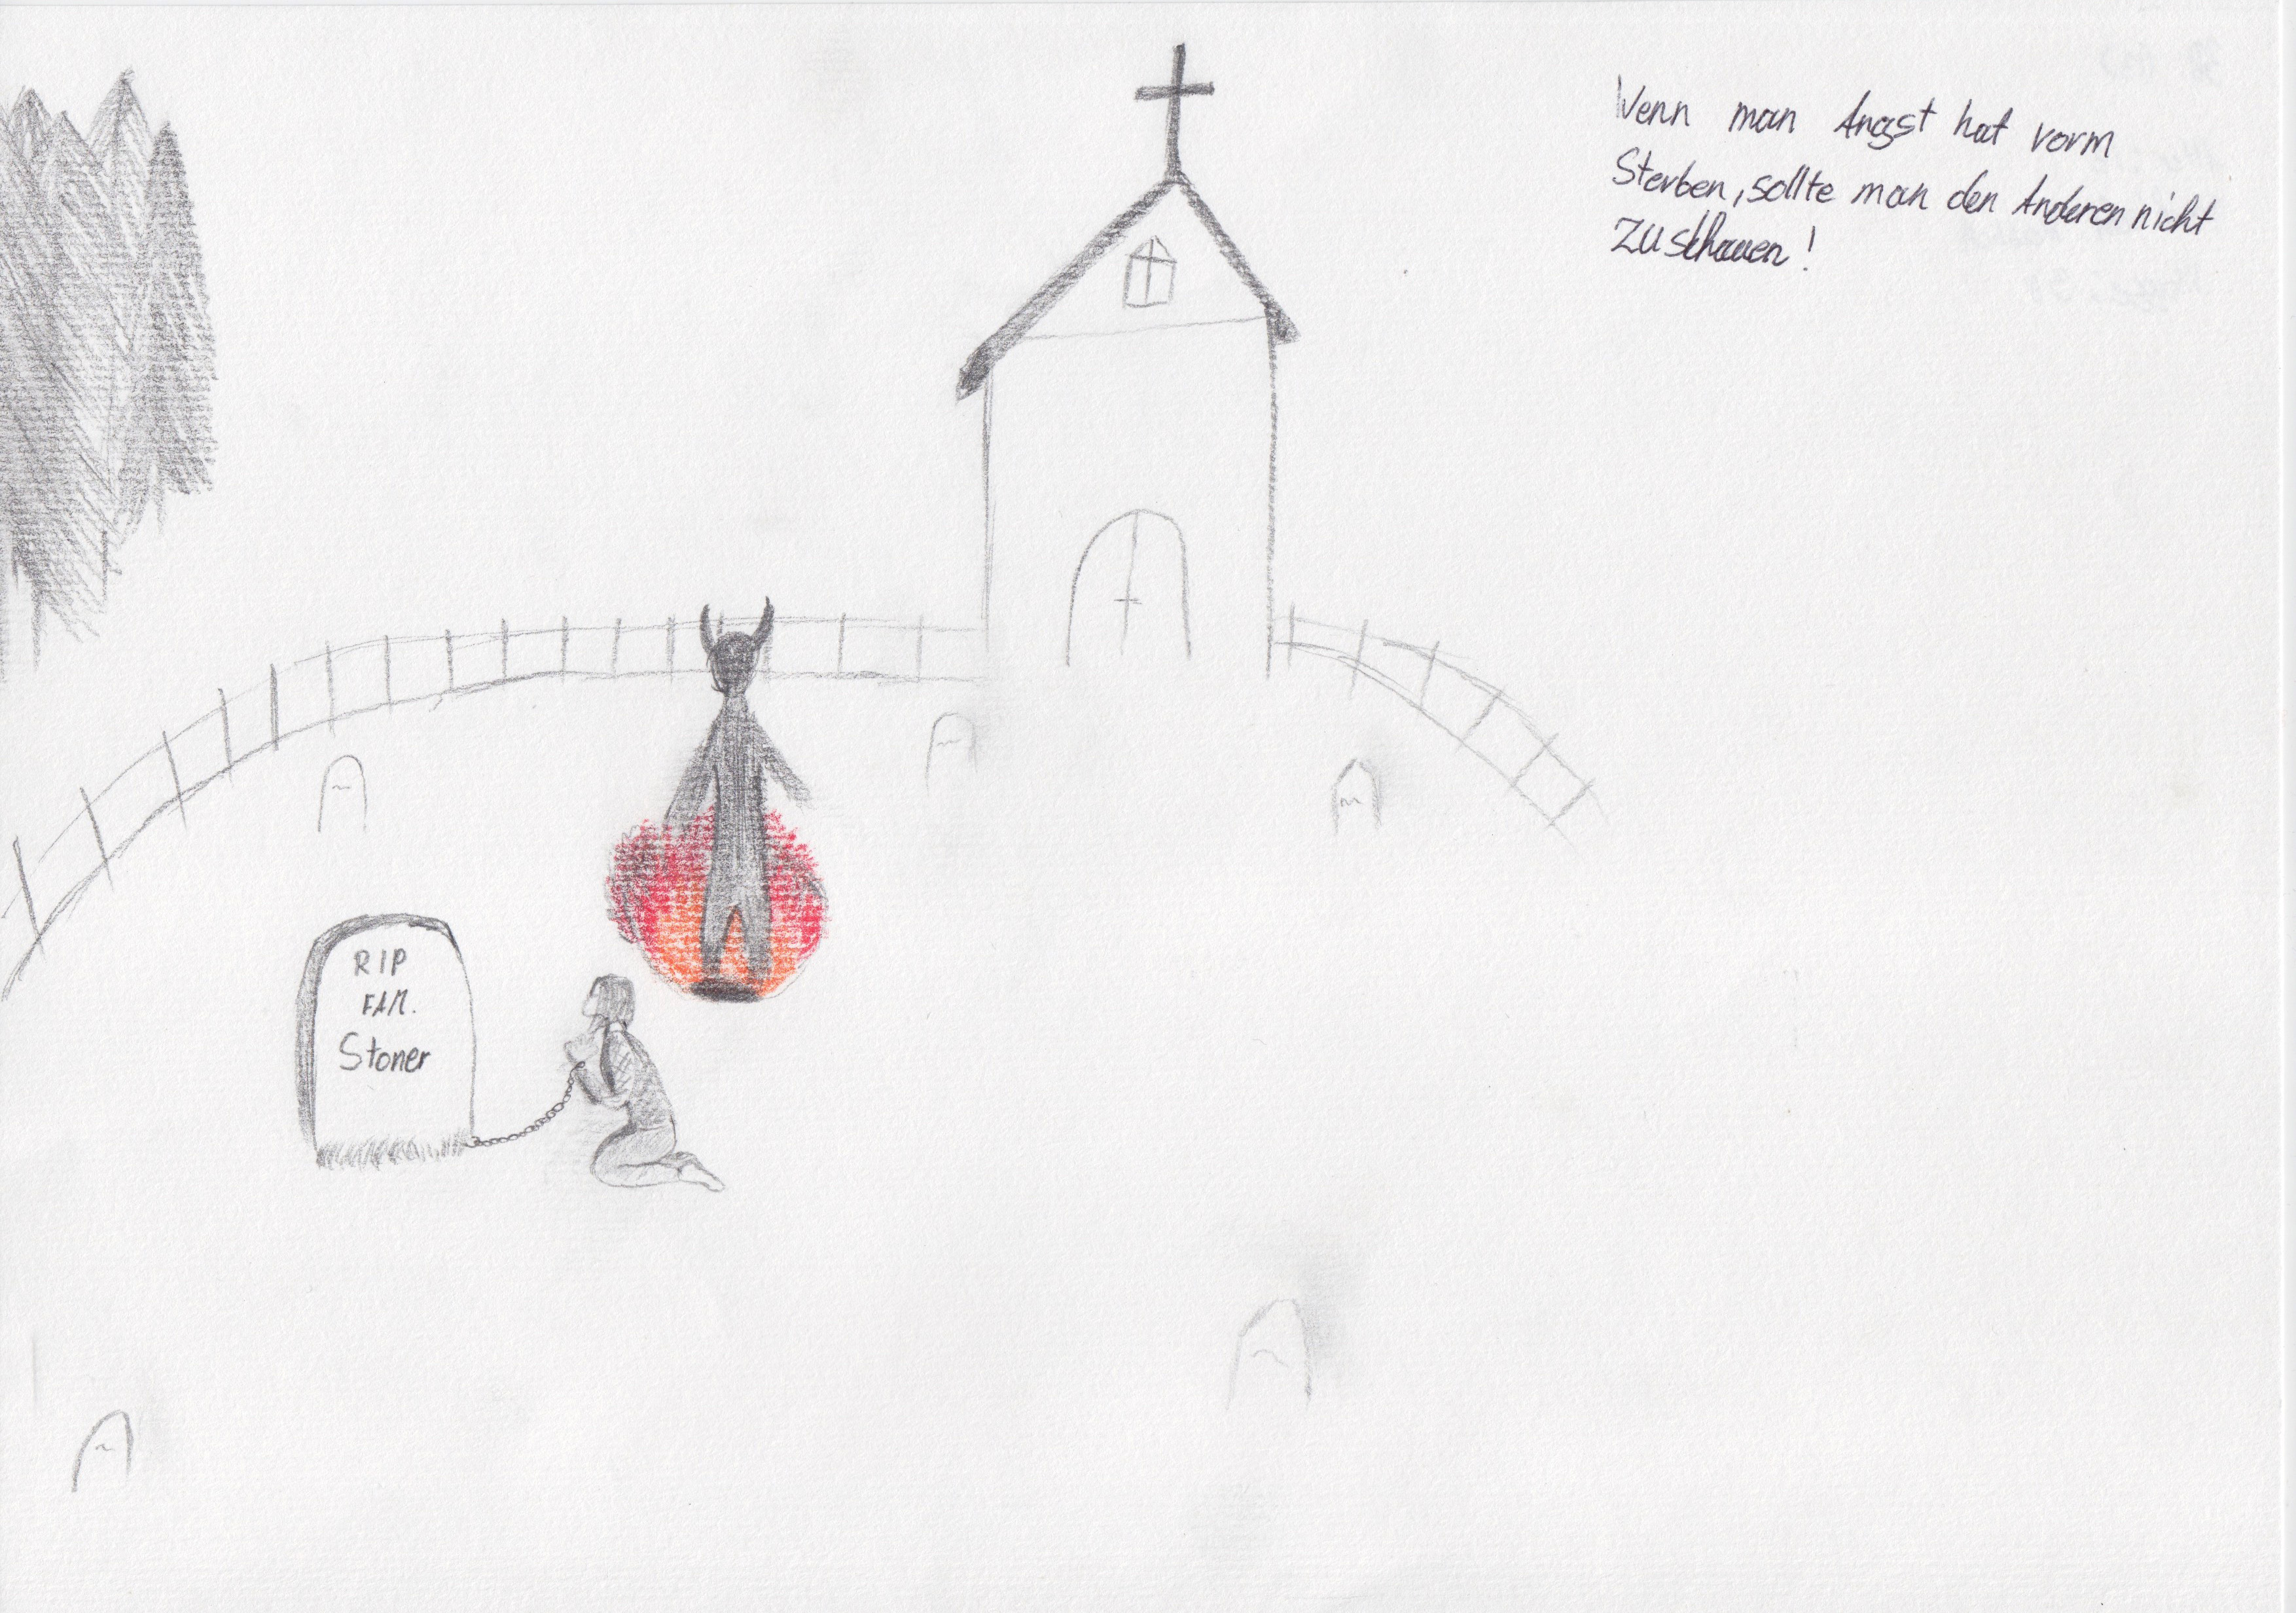 Wenn man Angst hat vorm
Sterben, sollte man den Anderen nicht
zuschauen!
RIP
FAM.
Stoner